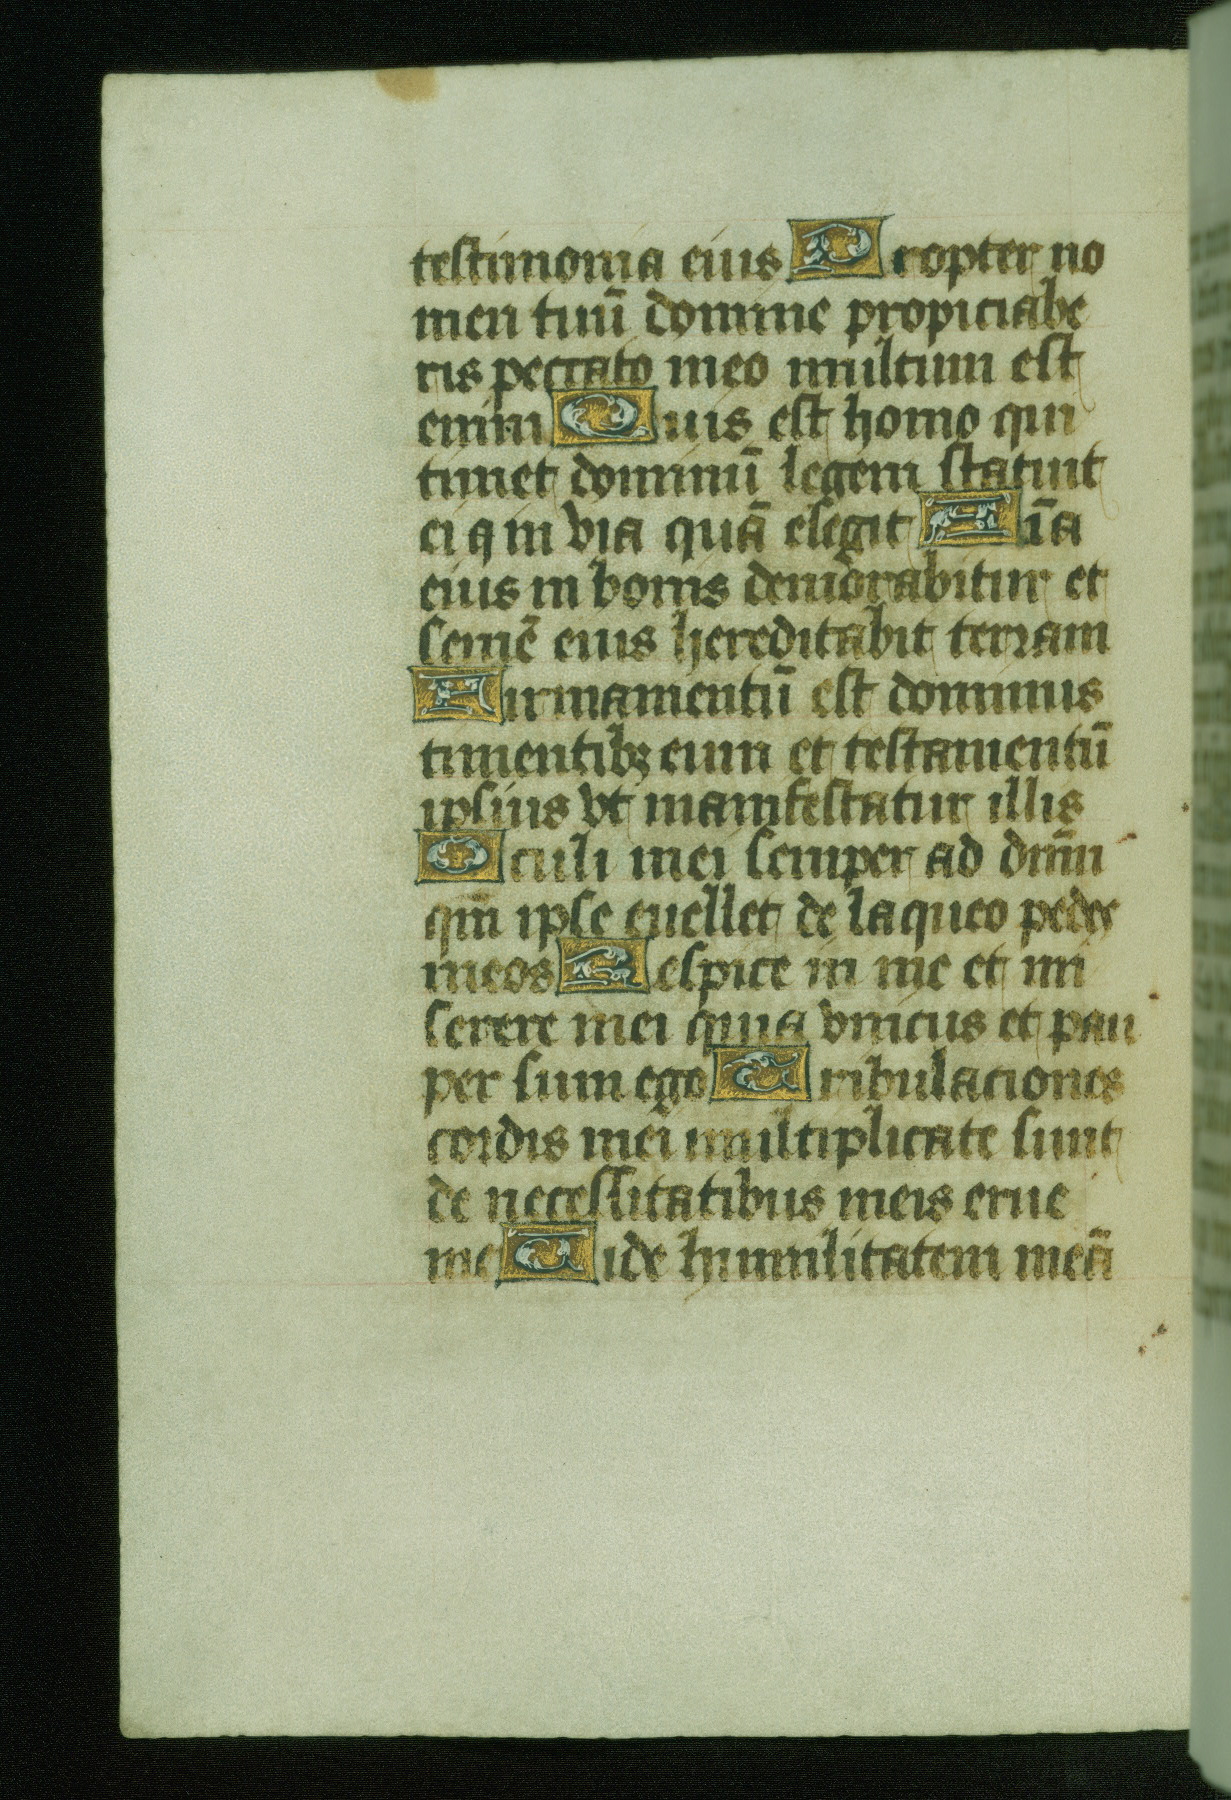 testimonia eius Propter no
men tuū domine propiciabe
ris peccato meo multum est
enim Quis est homo qui
timet dominū legem statuit
ei q in via quā elegit Aīa
eius in bonis demorabitur et
semē eius hereditabit terram
Firmamentū est dominus
timentibꝫ eum et testamentū
ipsius vt manifestatur illis
Oculi mei semper ad dn̄m
qm̄ ipse euellet de laqueo pedes
meos Respice in me et mi
serere mei quia vnicus et pau
per sum ego Tribulaciones
cordis mei multiplicate sunt
de necessitatibus meis erue
me Vide humilitatem meā